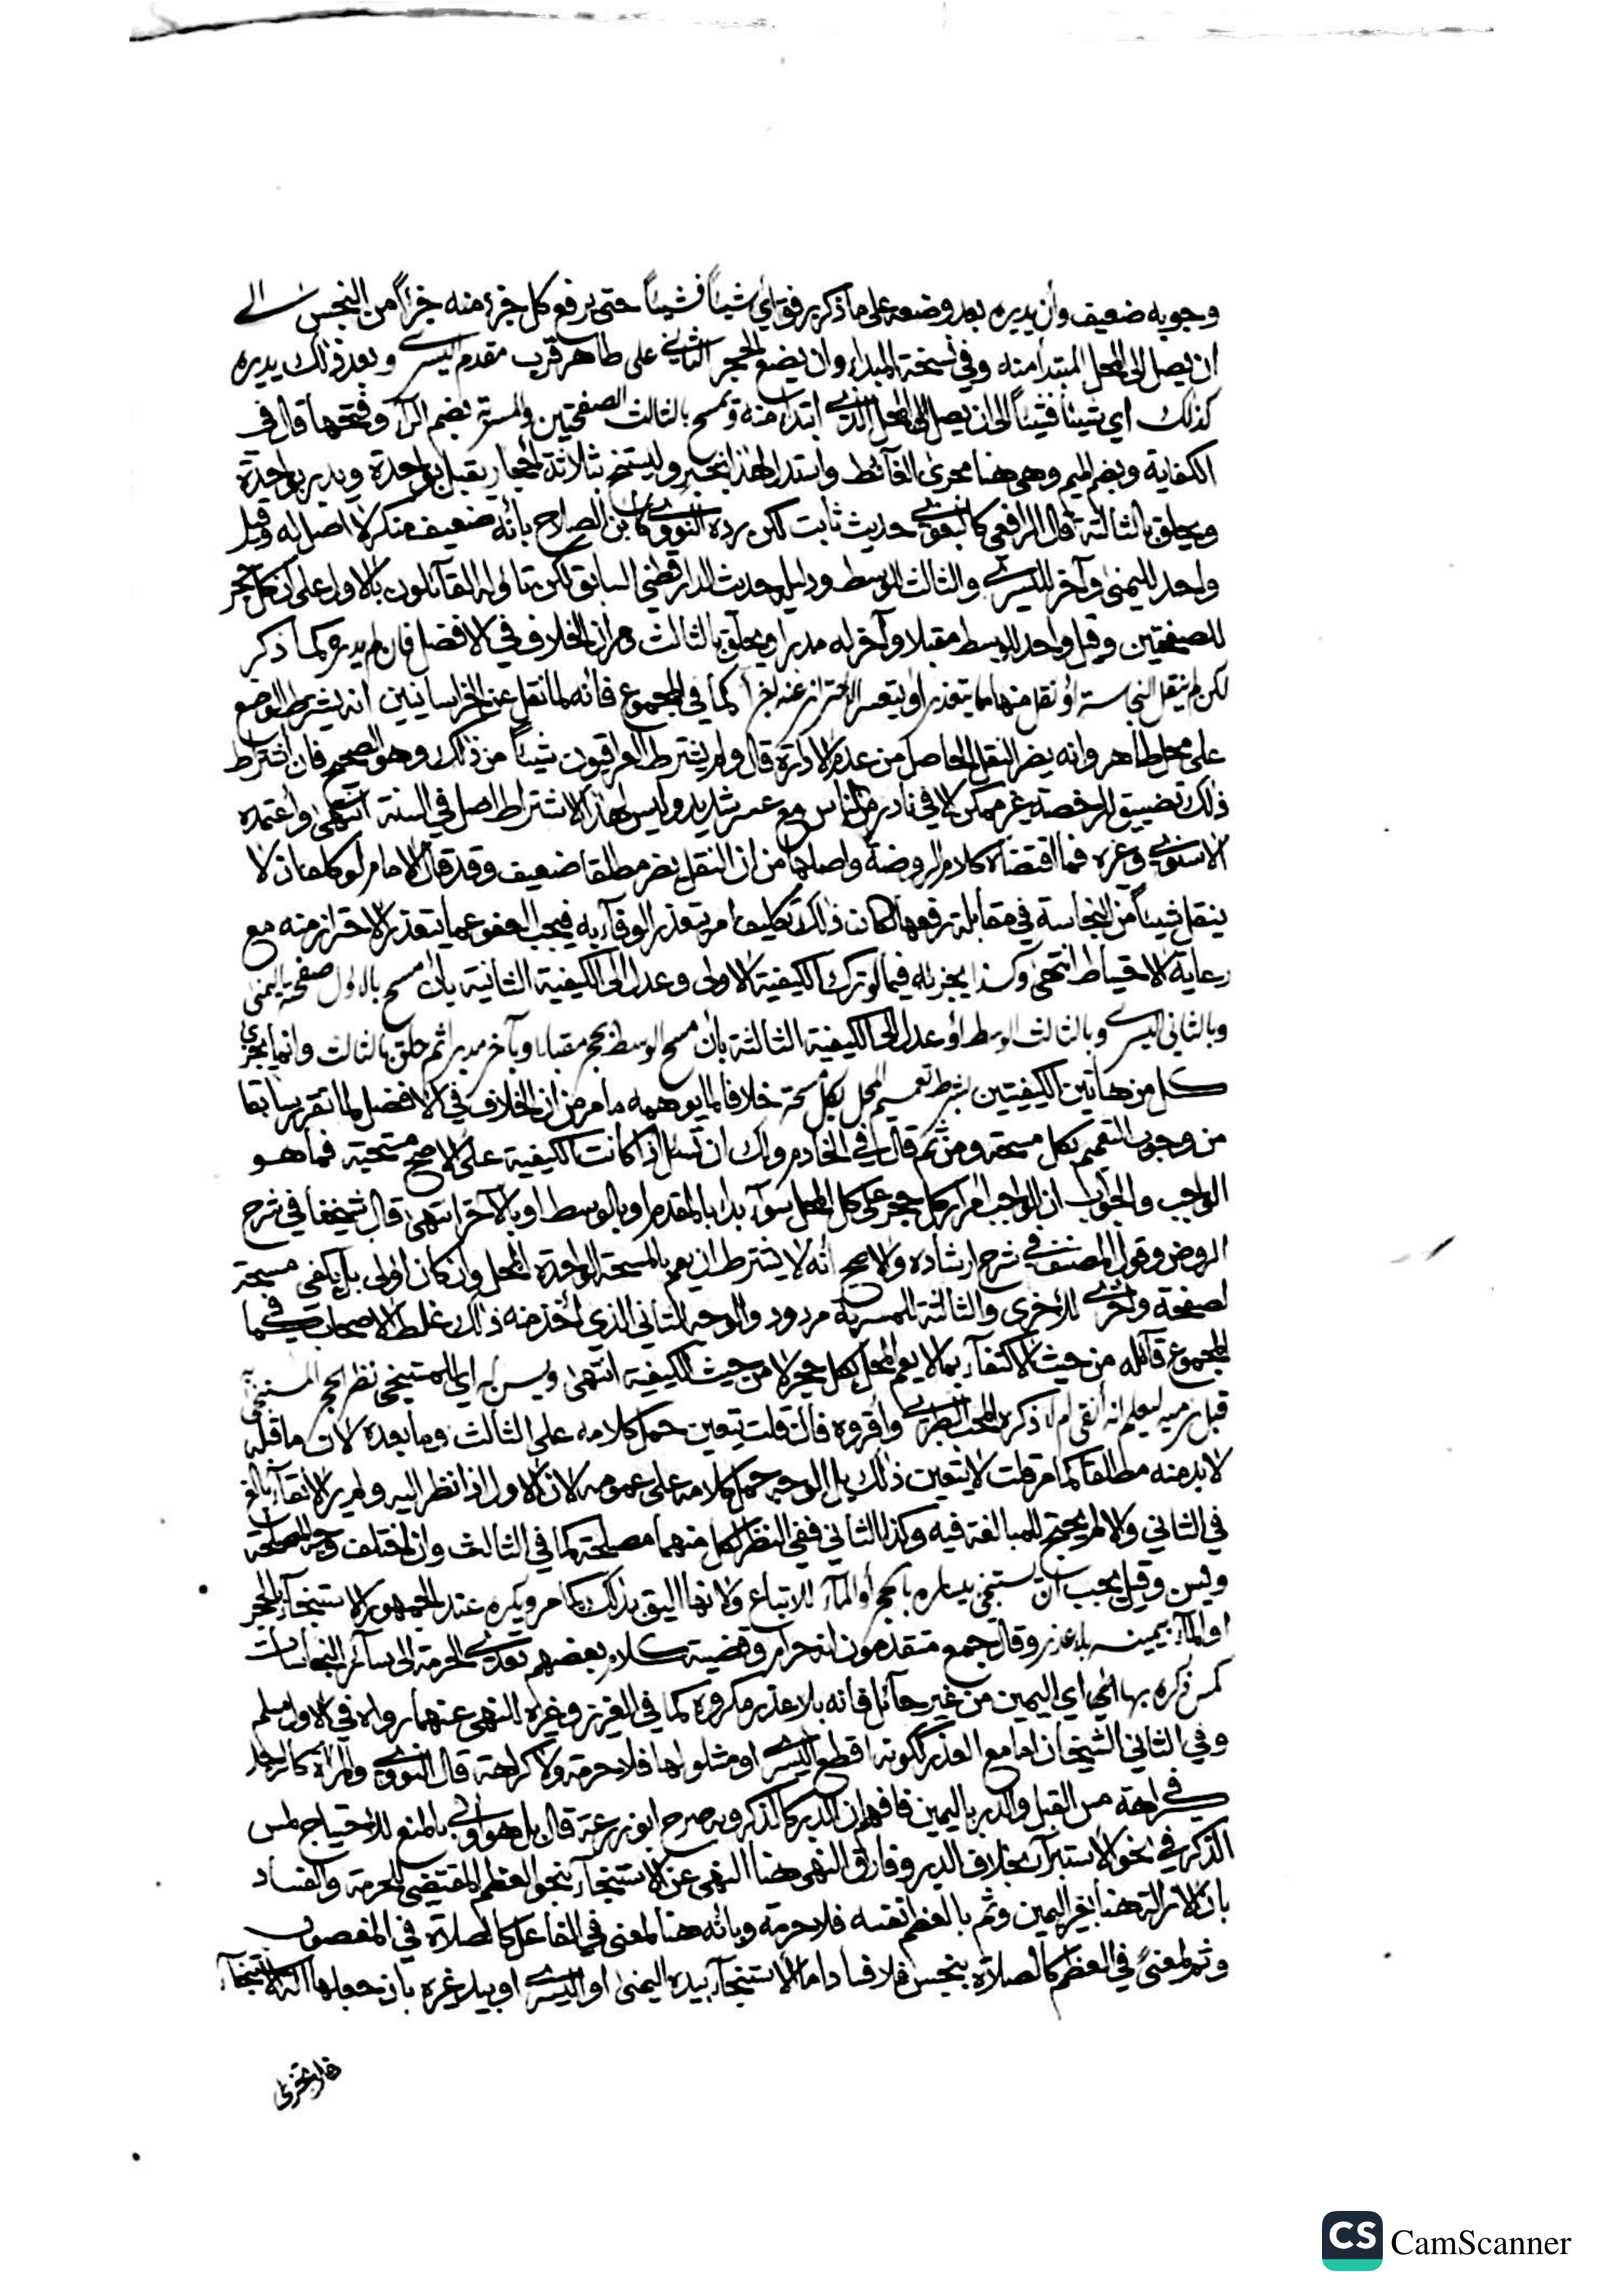 وجوبه ضعيف وأن يديره بعد وضعه على ما ذكر برفق أي شيئاً فشيئاً حتى يرفع كل جزء منه جزأً من النجس الى
ان يصل الى المحل المبتدأ منه وفي نسخة المبدا وان يضع الحجر الثاني على طاهر قرب مقدم اليسرى وبعد ذلك يديره
كذلك اي شيئاً فشيئاً الى ان يصل الى المحل الذي ابتدأ منه ويمسح بالثالث الصفحتين والمسربة بضم الرآ وفتحها قال في
الكفاية وبضم الميم وهي هنا مجرى الغآئط واستدل لهذا بخبر وليستنج بثلاثة احجار يقبل بواحدة ويدبر بواحدة
ويحلق بالثالثة قال الرافعي كالبغوي حديث ثابت لكن رده النووي كابن الصلاح بأنه ضعيف منكر لا اصل له وقيل
واحد لليمنى وآخر لليسرى والثالث للوسط ودليله حديث الدارقطني السابق لكن تاوله القآئلون بالاول على أن كل حجر
للصفحتين وقيل واحد للوسط مقبلا وآخر له مدبرا ويحلق بالثالث ومر ان الخلاف في الافضل فان لم يديره كما ذكر
لكن لم ينقل النجاسة أو نقل منها ما يتعذر او يتعسر الاحتراز عنه اجزأ كما في المجموع فانه لما نقل عن الخراسانيين انه يشترط الوضع
على محل طاهر وانه يضر النقل الحاصل من عدم الادارة قال ولم يشترط العراقيون شيئاً من ذلك وهو الصحيح فان اشتراط
ذلك تضييق للرخصة غير ممكن الا في نادر من الناس مع عسر شديد وليس لهذا الاشتراط اصل في السنة انتهى واعتمده
الاسنوي وغيره فما اقتضاه كلام الروضة واصلها من ان النقل يضر مطلقا ضعيف وقد قال الامام لو كلف ان لا
ينقل شيئاً من النجاسة في مقابلة رفعها لكان ذلك تكليف امر يتعذر الوفآء به فيجب العفو عما يتعذر الاحتراز منه مع
رعاية الاحتياط انتهى وكذا يجزيه فيما لو ترك الكيفية الاولى وعدل الى الكيفية الثانية بان مسح بالاول صفحته اليمنى
وبالثاني اليسرى وبالثالث الوسط أو عدل الى الكيفية الثالثة بأن مسح الوسط بحجر مقبلا وبآخر مدبرا ثم حلق بالثالث وانما يجزي
كل من هاتين الكيفيتين بشرط تعميم المحل بكل مسحة خلافا لما يوهمه ما مر من ان الخلاف في الافضل لما تقرر سابقا
من وجوب التعميم بكل مسحة ومن ثم قال في الخادم ولك ان تسئل اذا كانت الكيفية على الاصح مستحبة فما هو
الواجب والجواب ان الواجب امرار كل حجر على كل المحل سوآء بدا بالمقدم او بالوسط او بالآخر انتهى قال شيخنا في شرح
الروض وقول المصنف في شرح ارشاده والاصح انه لا يشترط ان يعم بالمسحة الواحدة المحل وان كان اولى بل يكفي مسحة
لصفحة واخرى للأخرى والثالثة للمسربة مردود والوجه الثاني الذي أخذ منه ذلك غلط الاصحاب كما في
المجموع قآئله من حيث الاكتفآء بما لا يعم المحل بكل حجر لا من حيث الكيفية انتهى ويسن له اي المستنجي نظر الحجر المستنجى به
قبل رميه ليعلم انه أنقى ام لا ذكره المحب الطبري وأقروه فان قلت يتعين حمل كلامه على الثالث وما بعده لان ما قبله
لا بد منه مطلقا كما مر قلت لا يتعين ذلك بل الوجه حمل كلامه على عمومه لان الاول اذا نظر اليه ولم ير الانقآء بالغ
في الثاني والا لم يحتج للمبالغة فيه وكذا الثاني ففي النظر لكل منهما مصلحة كما في الثالث وان اختلف وجه المصلحة
ويسن وقيل يجب ان يستنجي بيساره بالحجر أو المآء للاتباع ولانها اليق بذلك كما مر ويكره عند الجمهور الاستنجآء بالحجر
او المآء بيمينه بلا عذر وقال جمع متقدمون انه حرام وقضية كلام بعضهم تعدي الحرمة الى سآئر النجاسات
كمس ذكره بها اي اي اليمين من غير حآئل فانه بلا عذر مكروه كما في العزيز وغيره للنهي عنهما رواه في الاول مسلم
وفي الثاني الشيخان اما مع العذر ككونه اقطع اليسرى او مشلولها فلا حرمة ولا كراهة قال النووي والمرأة كالرجل
في كراهة مس القبل والدبر باليمين فافهم ان الدبر كالذكر وبه صرح ابو زرعة قال بل هو أولى بالمنع للاحتياج لمس
الذكر في نحو الاستبرآء بخلاف الدبر وفارق النهي هنا النهي عن الاستنجآء بنحو العظم المقتضي للحرمة والفساد
بان الازالة هنا بغير اليمين وثم بالعظم نفسه فلا حرمة وبانه هنا لمعنى في الفاعل كالصلاة في المغصوب
وثم لمعنىً في العظم كالصلاة بنجس فلا فساد اما الاستنجآء بيده اليمنى او اليسرى او بيد غيره بان جعلها آلة الاستنجآء